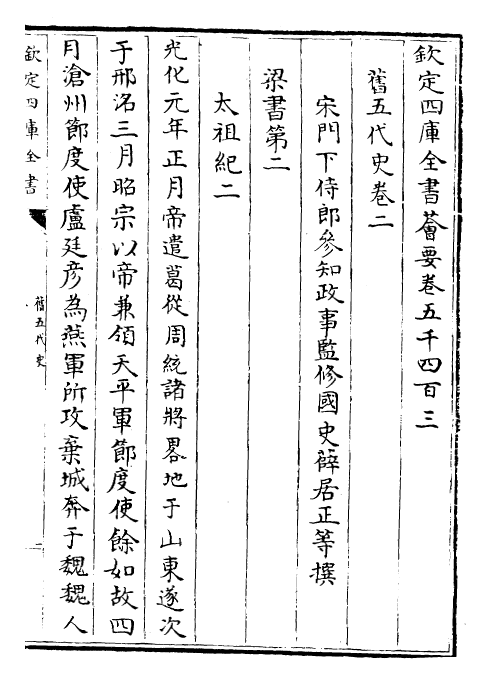 欽定四庫全書薈要卷五千四百三
舊五代史卷二
宋門下侍郎參知政事監修國史薛居正等撰
梁書第二
太祖紀二
光化元年正月帝遣葛從周統諸將畧地于山東遂次
于邢洺三月昭宗以帝兼領天平軍節度使餘如故四
月滄州節度使盧廷彦為燕軍所攻棄城奔于魏魏人
欽定四庫全書
舊五代史